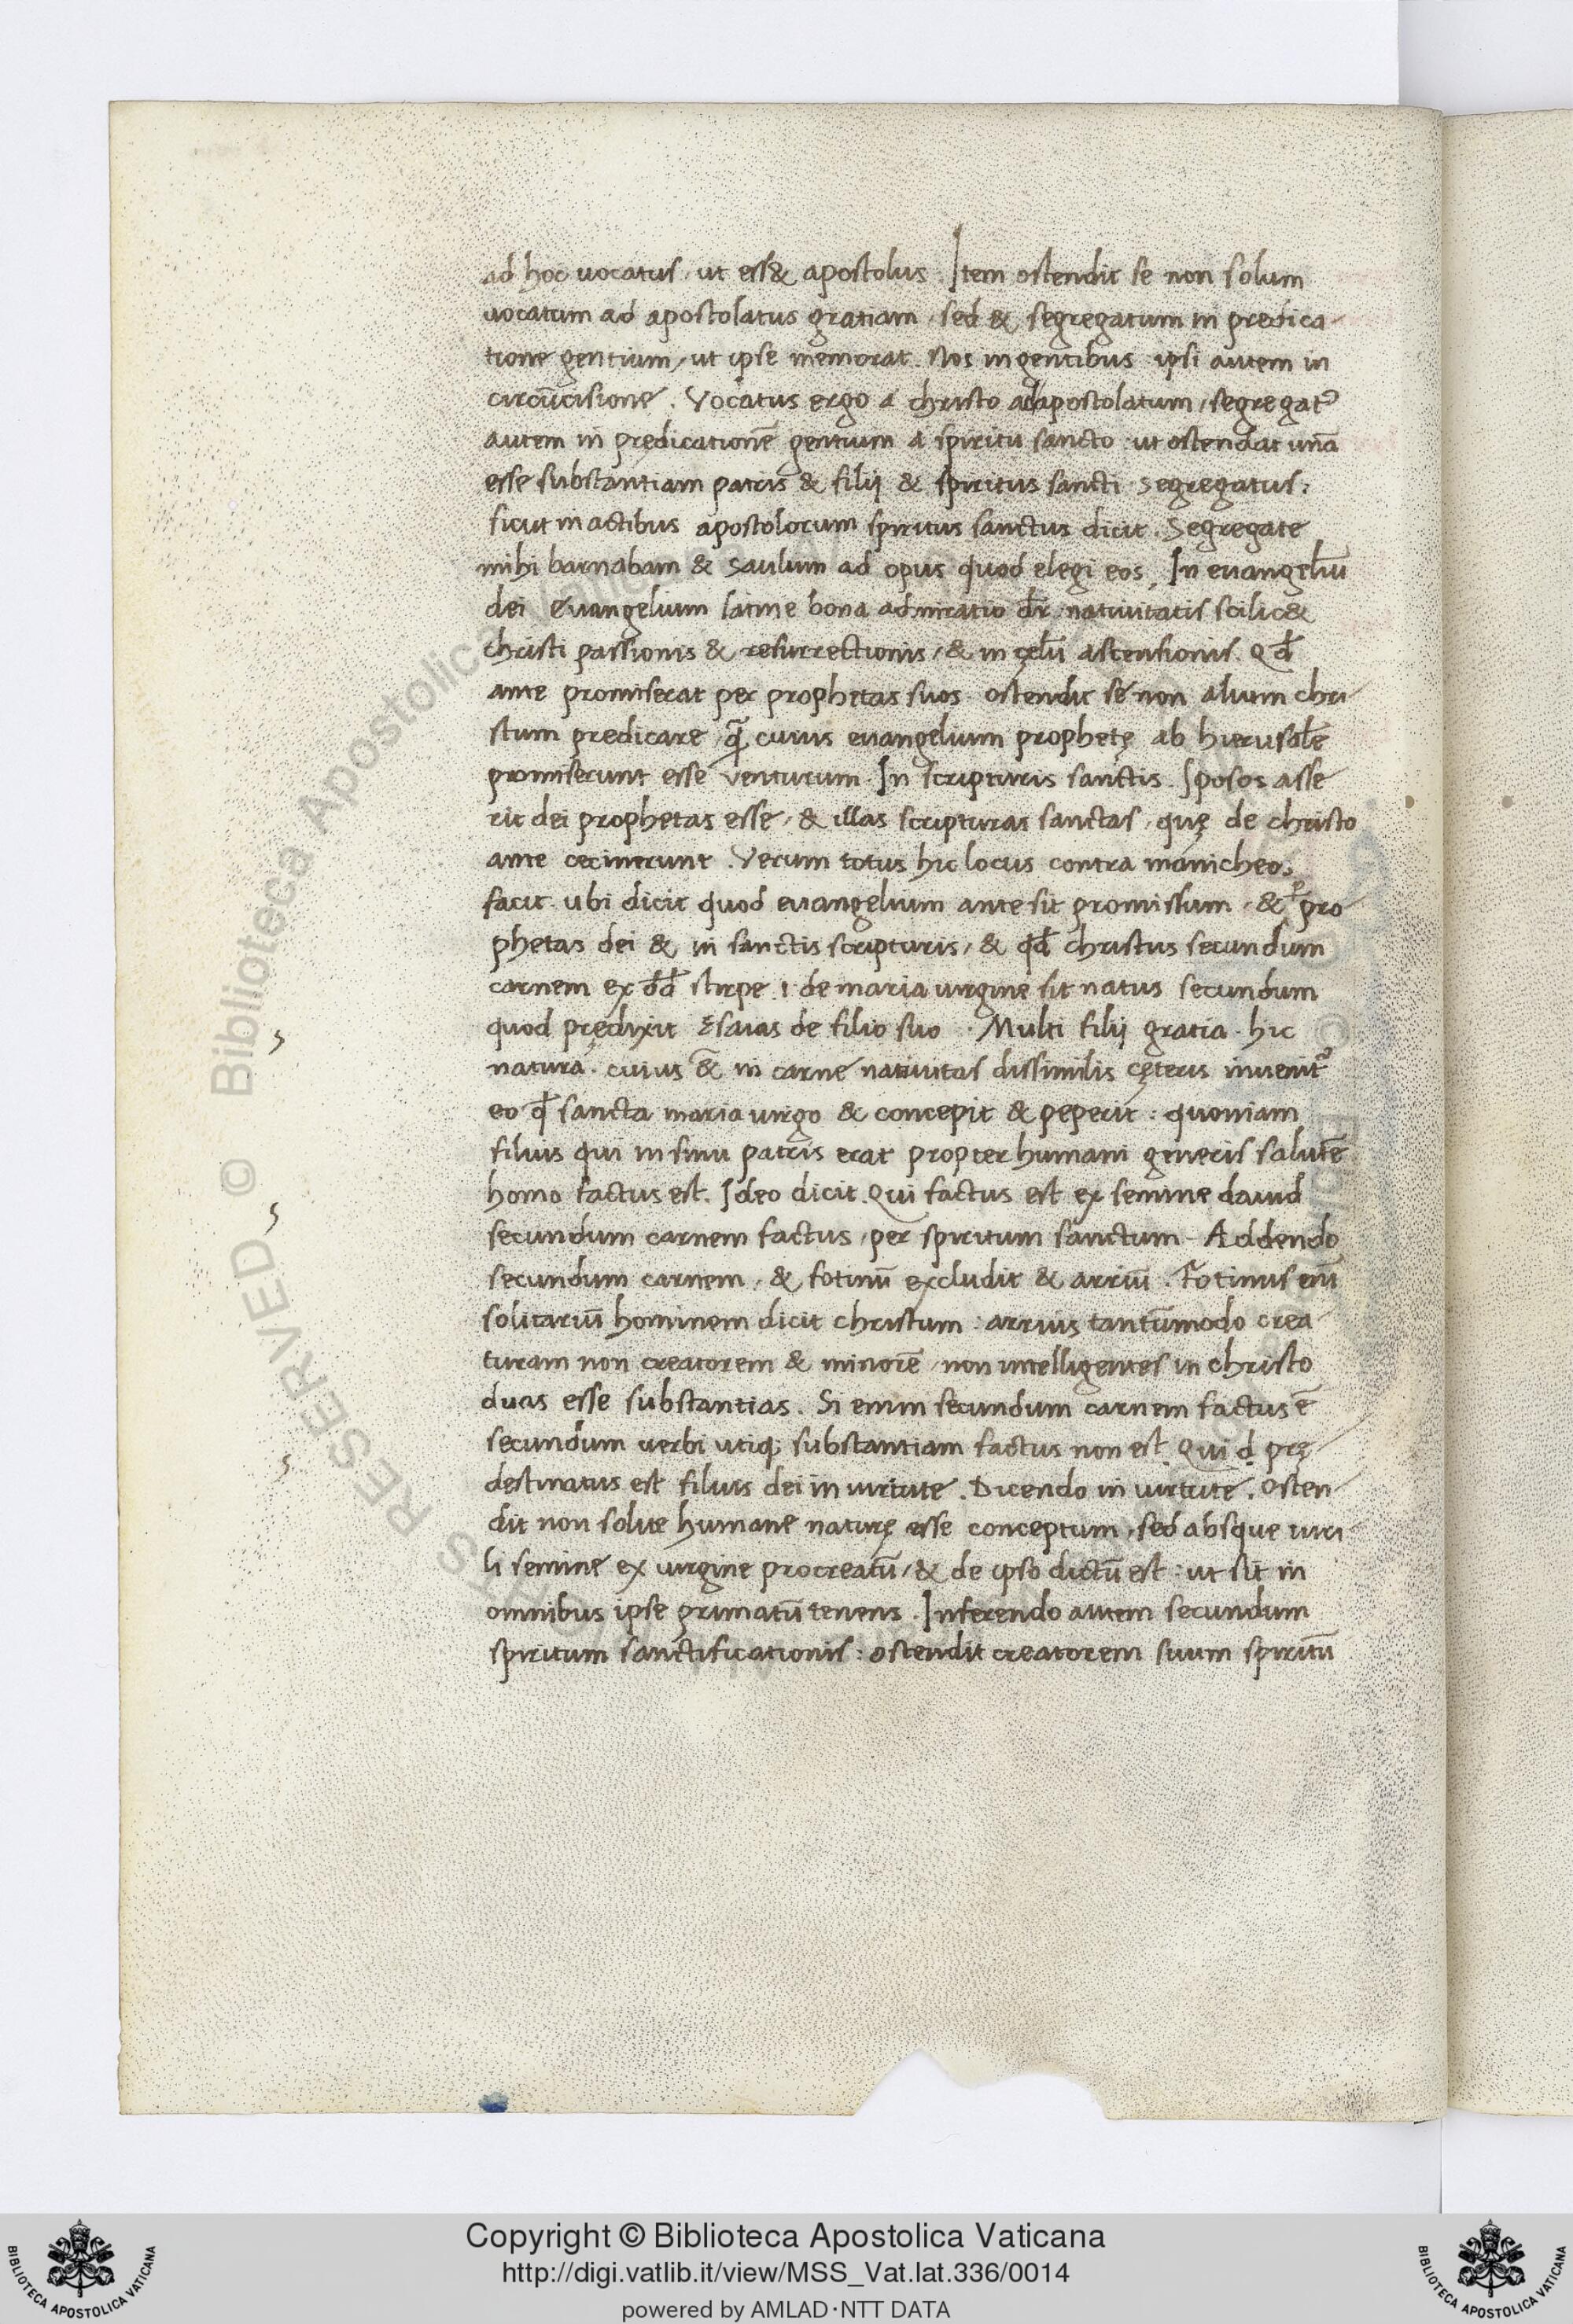 ad hoc uocatus, ut ess& apostolus. Item ostendit se non solum
uocatum ad apostolatus gratiam, sed & segregatum in predica-
tione gentium, ut ipse memorat. Nos in gentibus: ipsi autem in
circūcisione. Vocatus ergo a christo ad apostolatum, segregat᾽
autem in prędicationē gentium a spiritu sancto: ut ostendat unā
esse substantiam patris & filij & spiritus sancti. Segregatus:
sicut in actibus apostolorum spiritus sanctus dicit. Segregate
mihi barnabam & saulum ad opus quod elegi eos. In euangeliū
dei euangelium latine bona adnuntiatio dr̄, natiuitatis scilic&
christi passionis & resurrectionis, & in cęlū ascensionis. Qd̄
ante promiserat per prophetas suos. ostendit se non alium chri-
stum predicare, q̄ cuius euangelium prophetę ab hierusalē
promiserunt esse venturum. In scripturis sanctis. Iposos asse
rit dei prophetas esse, & illas scripturas sanctas, quę de christo
ante cecinerunt. Verum totus hic locus contra manicheos
facit. ubi dicit quod euangelium ante sit promissum, & p pro
phetas dei & in sanctis scripturis, & qd̄ christus secundum
carnem ex dd̄ stirpe .i. de maria uirgine sit natus secundum
quod prędixit esaias de filio suo. Multi filij gratia. hic
natura. cuius &̄ in carne natiuitas dissimilis cęteris inuenit᾽
eo q̄ sancta maria uirgo & concepit & peperit: quoniam
filius qui in sinu patris erat propter humani generis salutē
homo factus est. Ideo dicit. Qui factus est ex semine dauid
secundum carnem factus, per spiritum sanctum. Addendo
secundum carnem, & fotinū excludit & arriū. Fotinus eni᷄
solitariū hominem dicit christum: arrius tantūmodo crea
turam non creatorem & minorē, non intelligentes in christo
duas esse substantias. Si enim secundum carnem factus ē
secundum uerbi utiq; substantiam factus non est. Qui d. prę-
destinatus est filius dei in uirtute. Dicendo in uirtute. osten-
dit non solite humane naturę esse conceptum, sed absque uiri-
li semine ex uirgine procreatū, & de ipso dictū est: ut sit in
omnibus ipse primatū tenens. Inferendo autem secundum
spiritum sanctificationis: ostendit creatorem suum spiritū
Copyright © Biblioteca Apostolica Vaticana
http://digi.vatlib.it/view/MSS_Vat.lat.336/0014
powered by AMLAD·NTT DATA